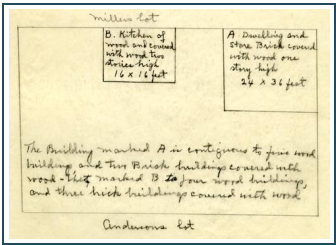 Millers lot
B. Kitchen of
wood and covered
with wood two
stories high
16 x 16 feet
A Dwelling and
Store Brick covered
with wood one
story high
24 x 36 feet
The Building marked A is contiguous to five wood
building and two Brick buildings covered with
wood - that marked B to four wood buildings,
and three brick buildings covered with wood
Andersons lot